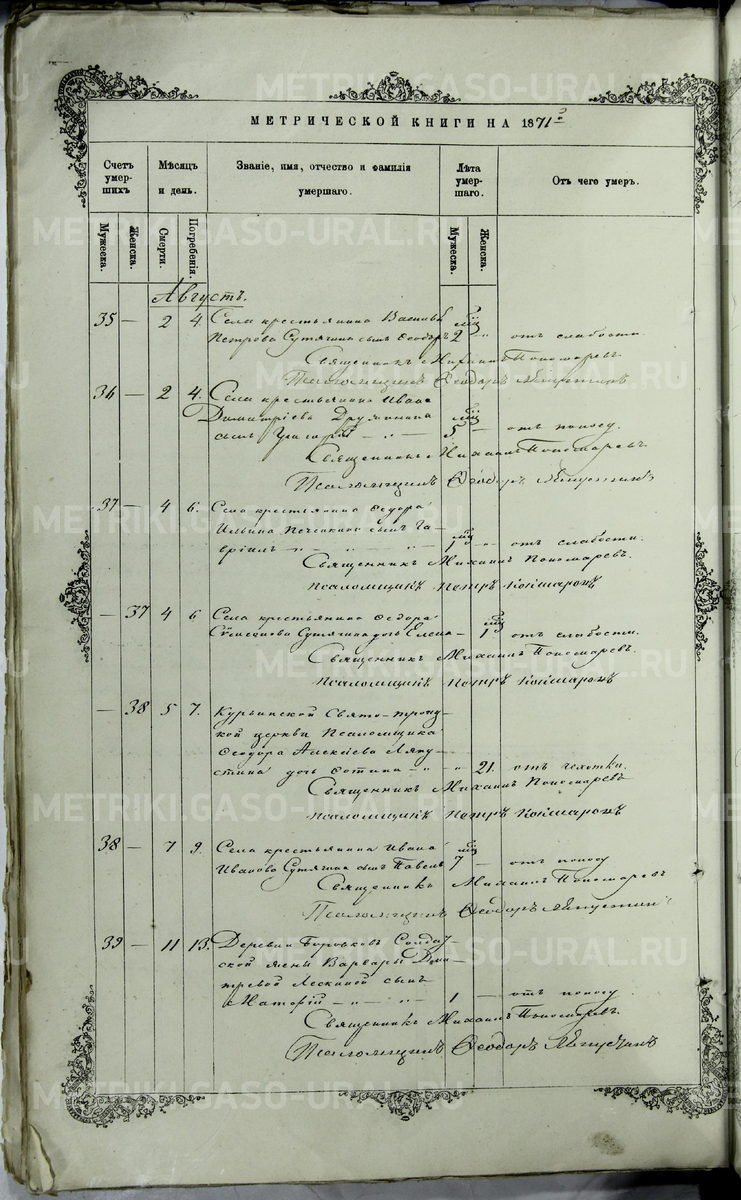 МЕТРИЧЕСКОЙ КНИГИ НА 1871й
Счетъ умерших Мѣсяцъ и день. Званіе, имя, отчество и фамилія умершаго. Лѣта умершаго. Отъ чего умеръ.
Мужеска. Женска. Смерти. Погребенія. Мужеска. Женска.
Августъ.
35 — 2 4. Села крестьянина Василья
Петрова Сутягина сынъ Ѳеодоръ 2 " отъ слабости
Священникъ Михаилъ Пономаревъ
Псаломщикъ Ѳеодоръ
36 — 2 4. Села крестьянина Ивана
Димитріева Дружинина
сынъ Григорій — " — 5 — отъ поносу.
Священникъ Михаилъ Пономаревъ
Псаломщикъ Ѳеодоръ
37 — 4 6. Села крестьянина Ѳедора
Ильина сынъ Га-
вріилъ " — " — 1 " отъ слабости.
Священникъ Михаилъ Пономаревъ.
Псаломщикъ Петръ
— 37 4 6 Села крестьянина Ѳедора
Сутягина дочь Елена — 1 отъ слабости.
Священникъ Михаилъ Пономаревъ.
Псаломщикъ Петръ
— 38 5 7. Курьинской Свято-Троиц-
кой церкви Псаломщика
Ѳеодора Алексѣева Ляпу-
стина дочь Фотина — " — " 21. отъ чахотки.
Священникъ Михаилъ Пономаревъ
Псаломщикъ Петръ
38 — 7 9. Села крестьянина Ивана
Иванова Сутягина сынъ Павелъ 7 — отъ поносу
Священникъ Михаилъ Пономаревъ
Псаломщикъ Ѳеодоръ
39 — 11 13. Деревни Боровковъ Солдат-
ской жены Варвары Дими-
тревой сынъ
— " — 1 — отъ поносу
Священникъ Михаилъ Пономаревъ.
Псаломщикъ Ѳеодоръ
METRIKI.GASO-URAL.RU